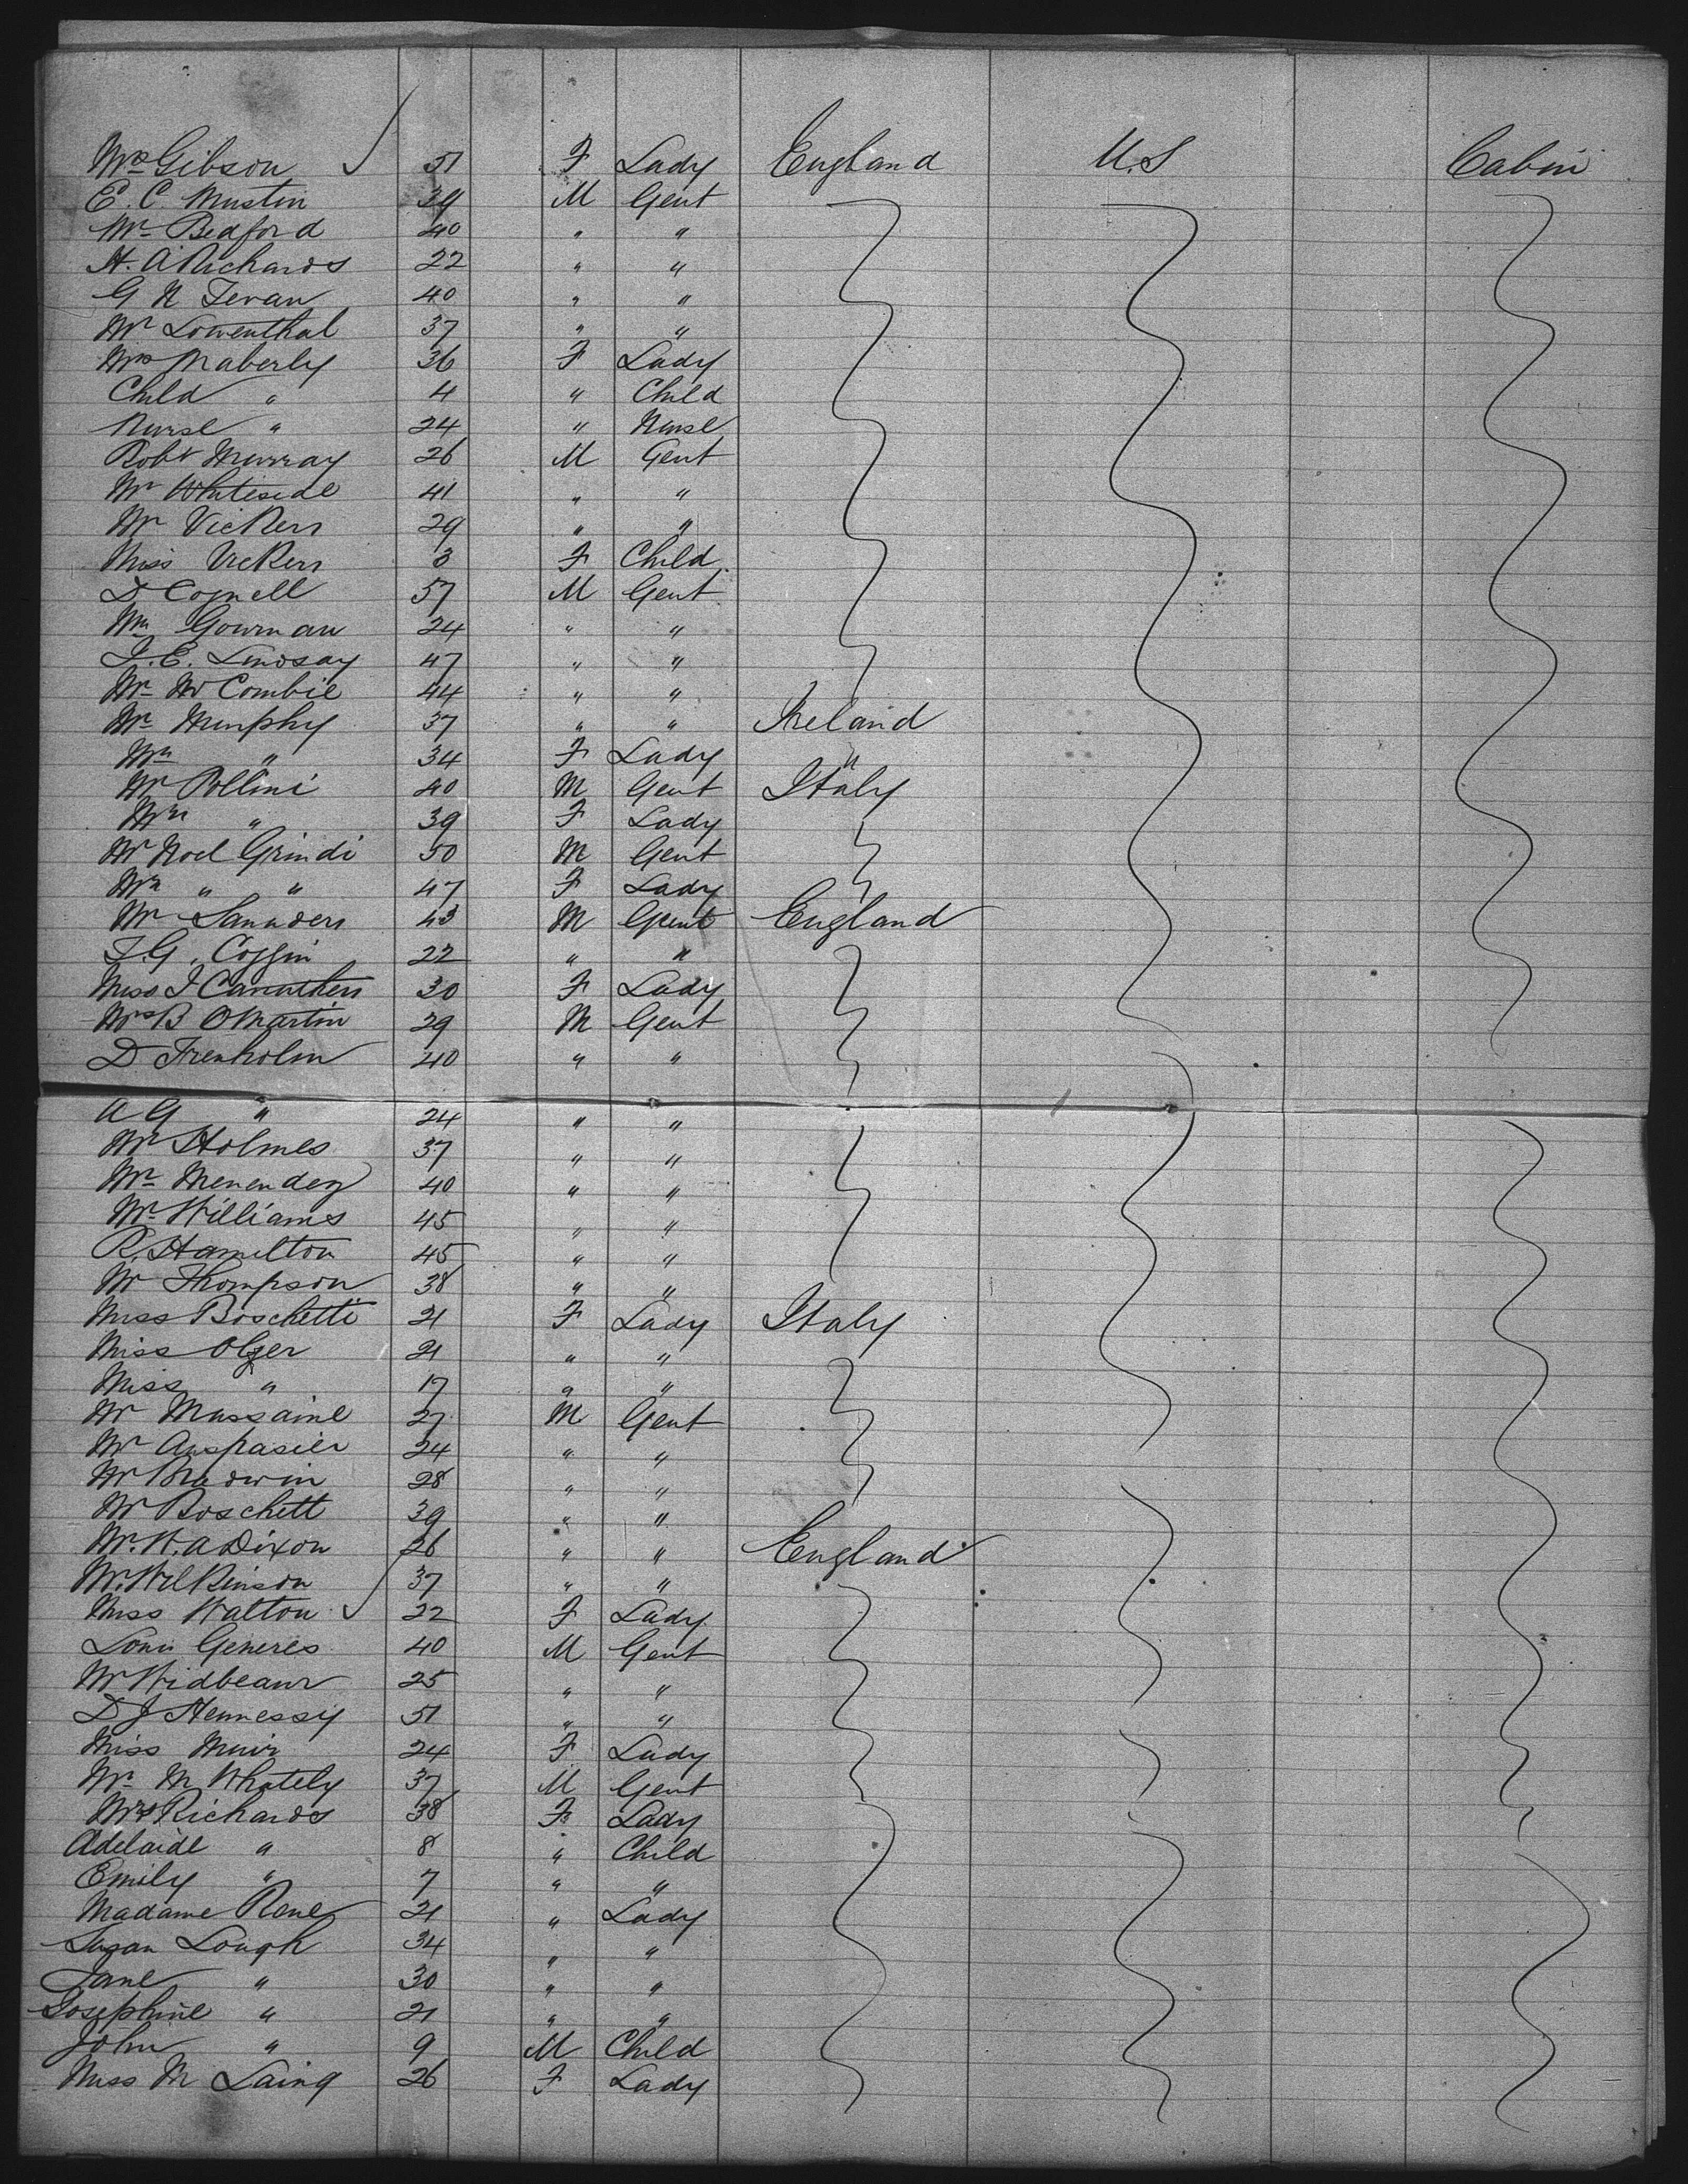 Mrs Gibson 51 F Lady England U.S Cabin
E. C. Mustin 39 M Gent
Mr Bedford 40 " "
H. A Richards 22 " "
G N Tevan 40 " "
Mr Lowenthal 37 " "
Mrs Maberly 36 F Lady
Child " 4 " Child
Nurse " 24 " Nurse
Robt Murray 26 M Gent
Mr Whiteside 41 " "
Mr Vickers 29 " "
Miss Vickers 3 F Child
D Cornell 57 M Gent
Wm Gowman 24 " "
J. E. Lindsay 47 " "
Mr McCombie 44 " "
Mr Murphy 37 " " Ireland
Mrs " 34 F Lady "
Mr Pollini 40 M Gent Italy
Mrs " 39 F Lady
Mr Noel Grindi 50 M Gent
Mrs " " 47 F Lady
Mr Saunders 43 M Gent England
T. G. Coggin 22 " "
Miss J Carruthers 30 F Lady
Mrs B O Martin 29 M Gent
D Trenholm 40 " "
A G " 24 " "
Mr Holmes 37 " "
Mr Menendez 40 " "
Mr Williams 45 " "
R. Hamilton 45 " "
Mr Thompson 38 " "
Miss Boschetti 21 F Lady Italy
Miss Olzer 21 " "
Miss " 17 " "
Mr Mussaine 27 M Gent
Mr 24 " "
Mr 28 " "
Mr Boschett 39 " "
Mr. W. A Dixon 26 " " England
Mr. Wilkinson 37 " "
Miss Walton 22 F Lady
Louis Generes 40 M Gent
Mr 25 " "
D J Hennessy 51 " "
Miss Muir 24 F Lady
Mr M Whately 37 M Gent
Mrs Richards 38 F Lady
Adelaide " 8 " Child
Emily " 7 " "
Madame Rone 21 " Lady
Susan Lough 34 " "
Jane " 30 " "
Josephine " 21 " "
John " 9 M Child
Miss M Laing 26 F Lady